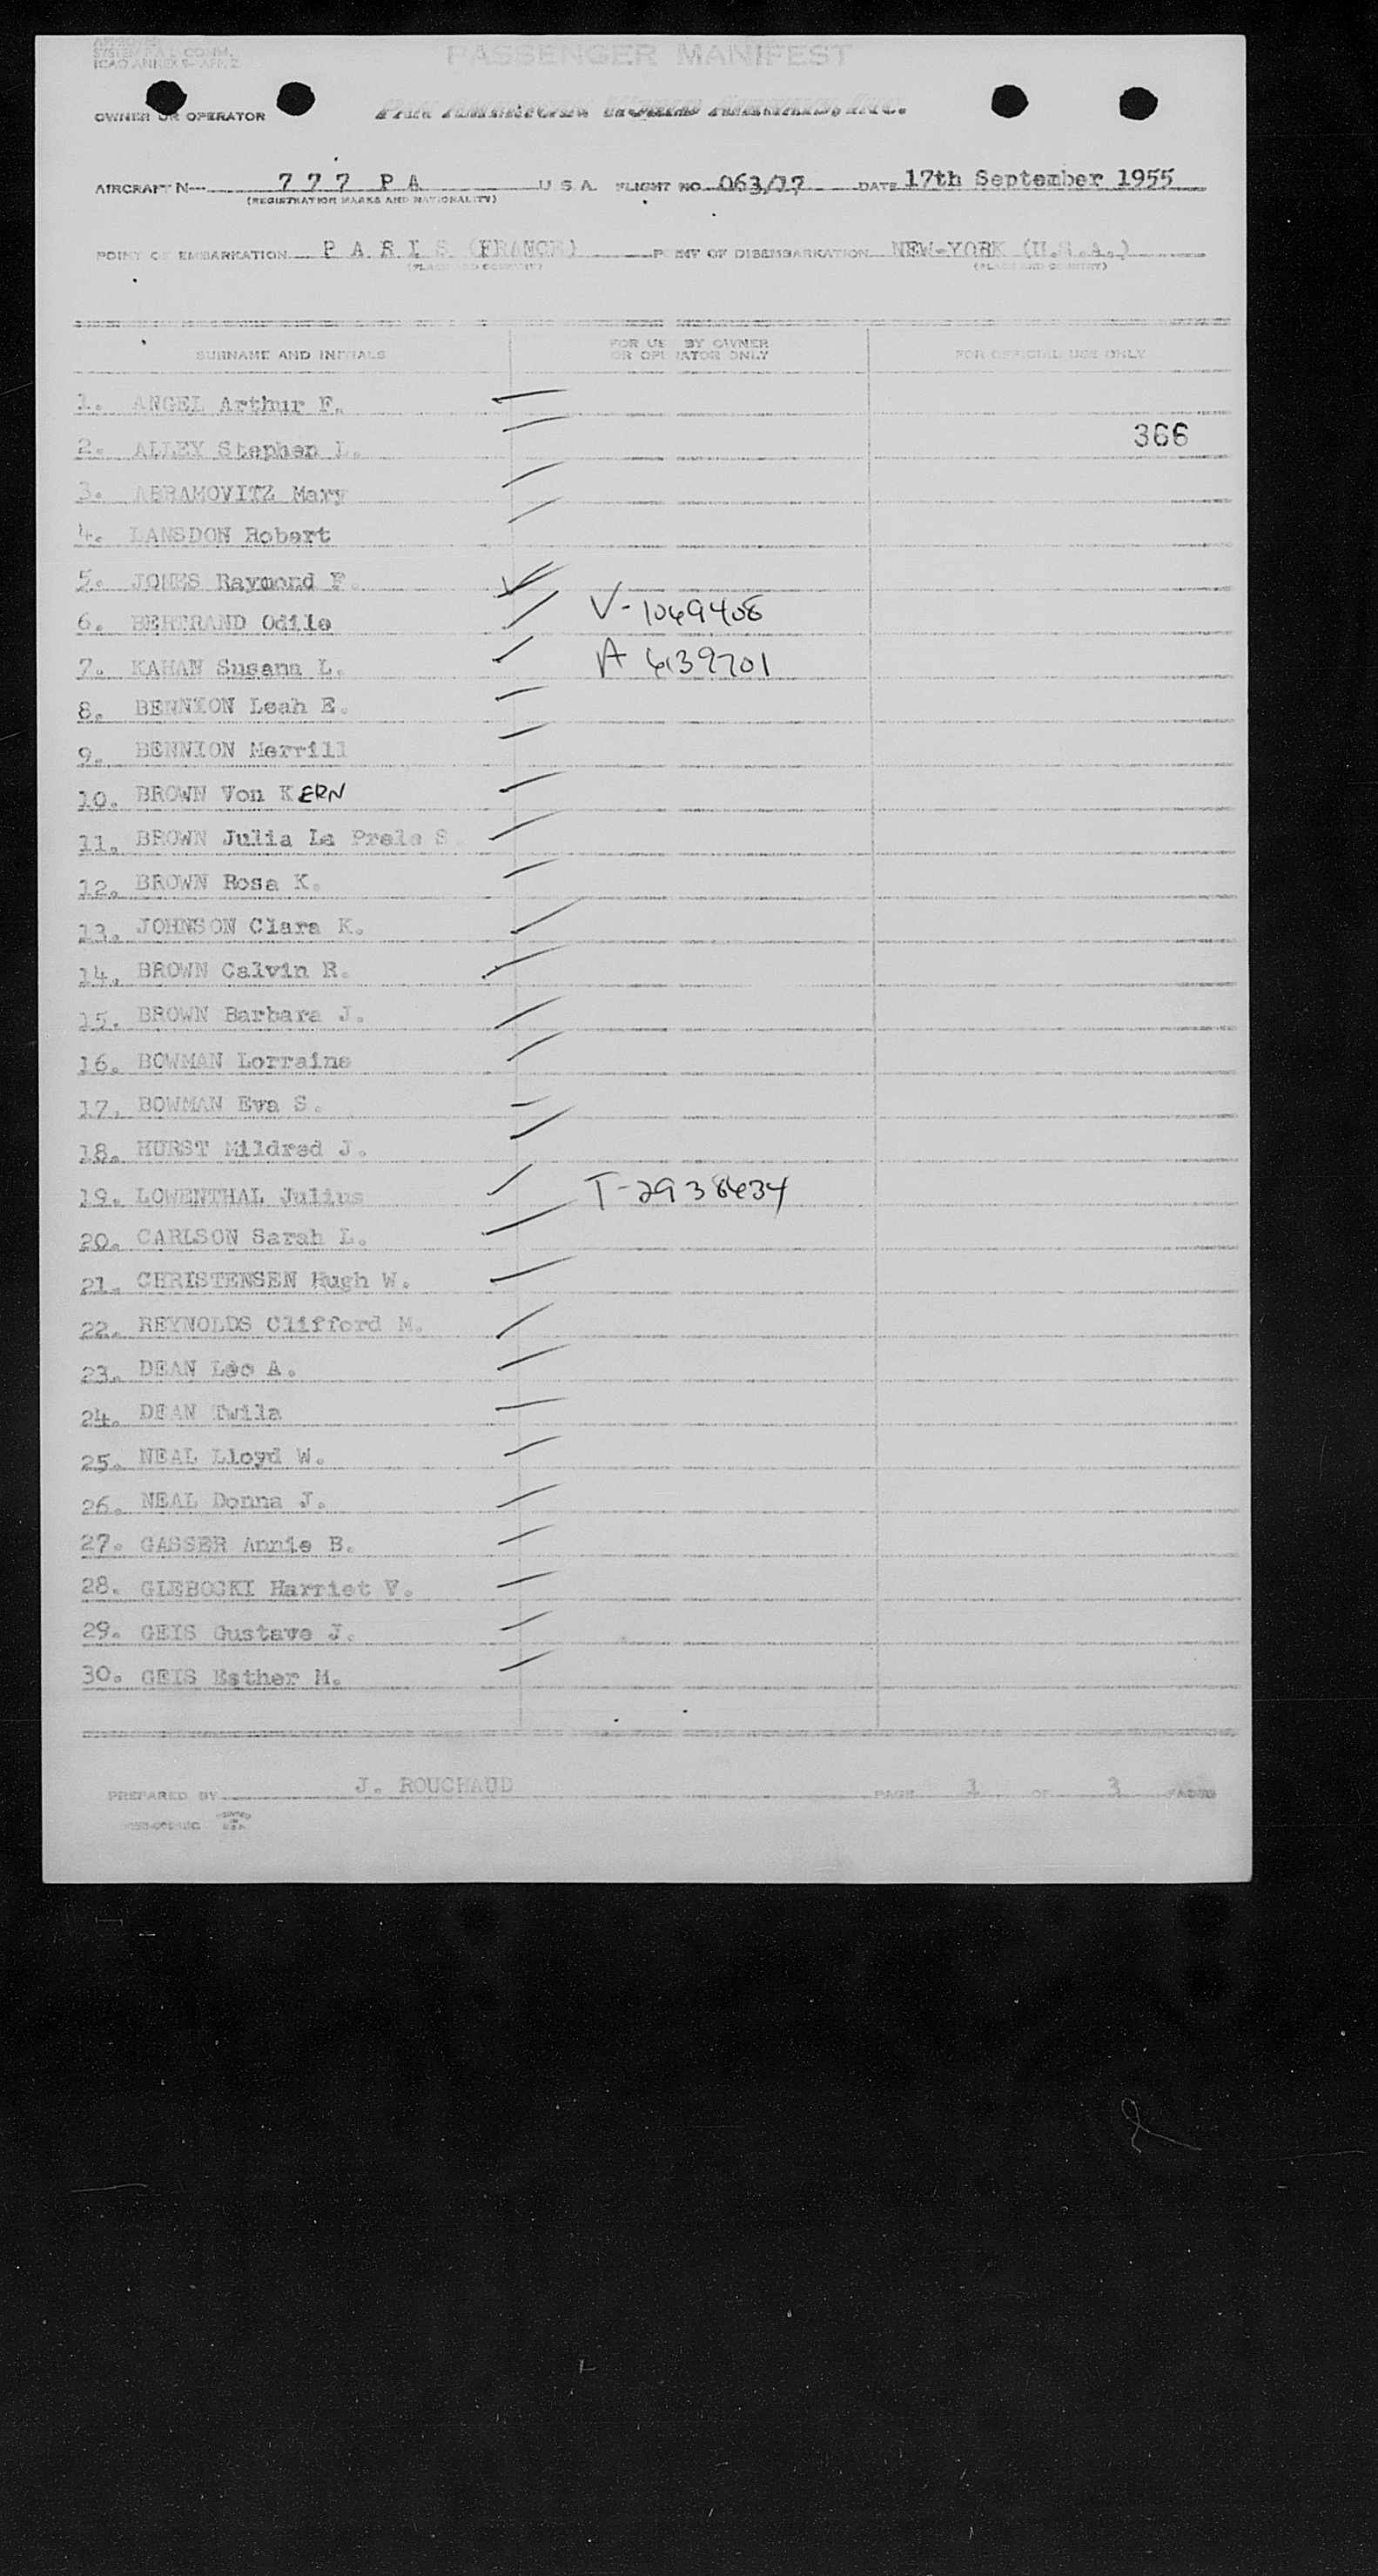 APPROVED
SYSTEM R.A.L. COMM.
ICAO ANNEX 9- APP. 2
PASSENGER MANIFEST
OWNER OR OPERATOR PAN AMERICAN WORLD AIRWAYS, INC.
AIRCRAFT N— 7 7 7 P A U S A. FLIGHT NO 063/17 DATE 17th September 1955
(REGISTRATION MARKS AND NATIONALITY)
POINT OF EMBARKATION P A R I S (FRANCE) POINT OF DISEMBARKATION NEW-YORK (U.S.A.)
(PLACE AND COUNTRY) (PLACE AND COUNTRY)
SURNAME AND INITIALS FOR USE BY OWNER OR OPERATOR ONLY FOR OFFICIAL USE ONLY
1. ANGEL Arthur F.
366
2. ALLEY Stephen L.
3. ABRAMOVITZ Mary
4. LANSDON Robert
5. JONES Raymond F.
6. BERTRAND Odile V-1069408
7. KAHAN Susana L. A 6139701
8. BENNION Leah E.
9. BENNION Merrill
10. BROWN Von KERN
11. BROWN Julia La Prele S
12. BROWN Rosa K.
13. JOHNSON Clara K.
14. BROWN Calvin R.
15. BROWN Barbara J.
16. BOWMAN Lorraine
17. BOWMAN Eva S.
18. HURST Mildred J.
19. LOWENTHAL Julius T-2938434
20. CARLSON Sarah L.
21. CHRISTENSEN Hugh W.
22. REYNOLDS Clifford M.
23. DEAN Léo A.
24. DEAN Twila
25. NEAL Lloyd W.
26. NEAL Donna J.
27. GASSER Annie B.
28. GLEBOCKI Harriet V.
29. GEIS Gustave J.
30. GEIS Esther M.
PREPARED BY J. ROUCHAUD PAGE 1 OF 3 PAGES
PRINTED IN U.S.A.